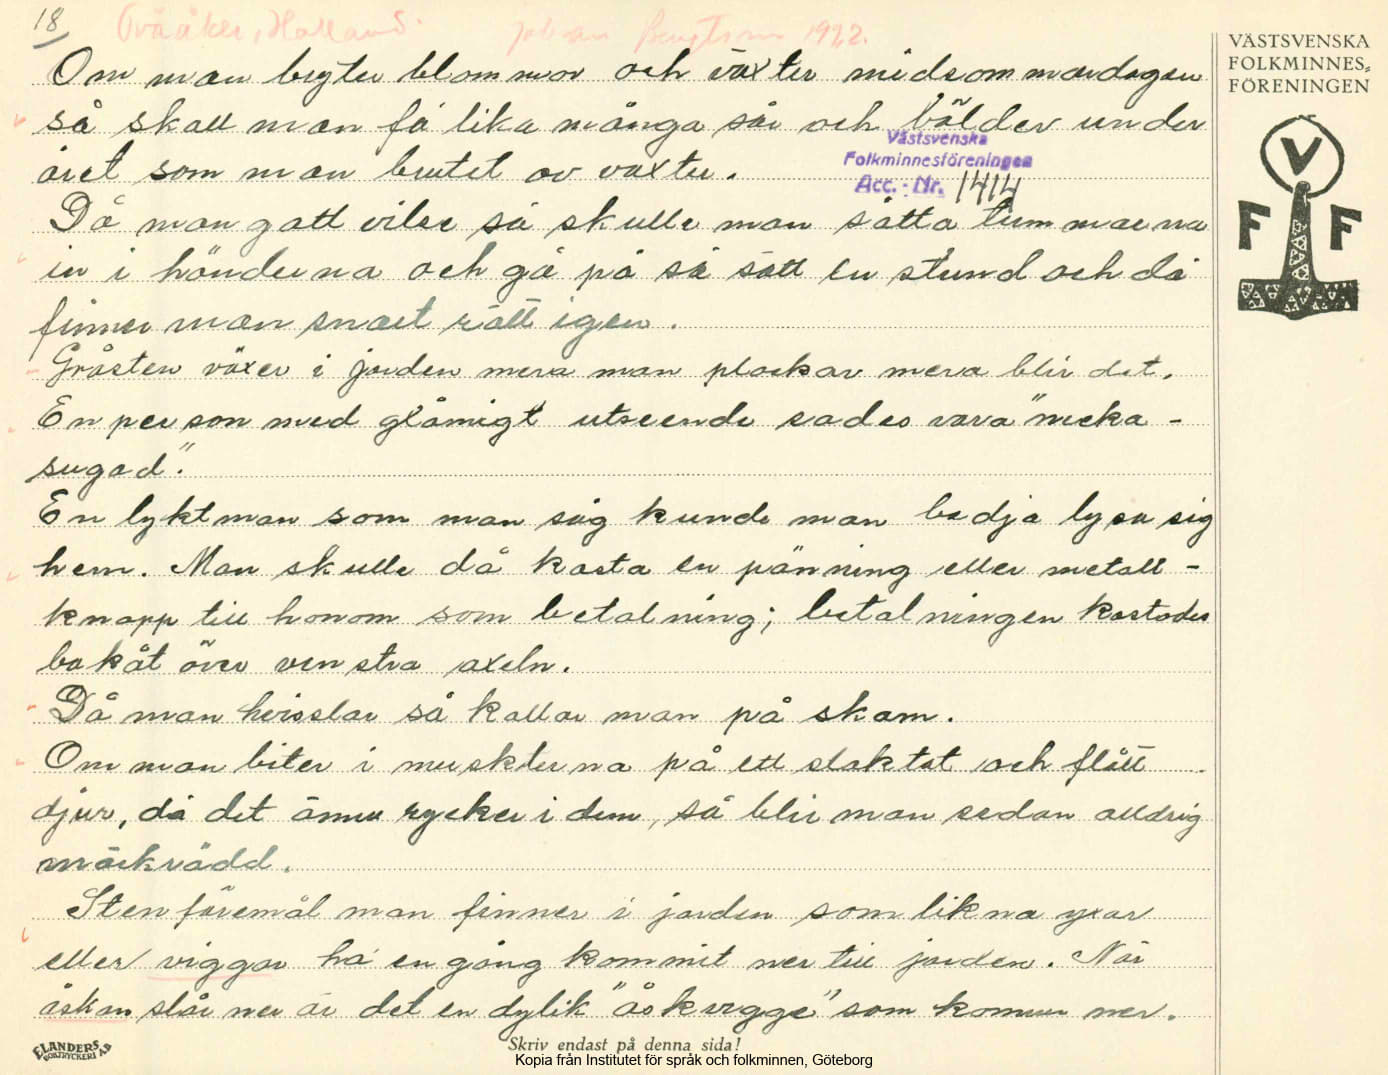 18
Tvååker, Halland. Johan Bengtsson 1922.
VÄSTSVENSKA
FOLKMINNES-
FÖRENINGEN
V
F F
Om man bryter blommor och växter midsommardagen
så skall man få lika många sår och bölder under
året som man brutit av växter.
Västsvenska
Folkminnesföreningen
Acc. - Nr. 1414
Då man gått vilse så skulle man sätta tummarna
in i händerna och gå på så sätt en stund och då
finner man snart rätt igen.
Gråsten växer i jorden mera man plockar mera blir det.
En person med glåmigt utseende sades vara "necka-
sugad".
En lyktman som man såg kunde man bedja lysa sig
hem. Man skulle då kasta en pänning eller metall-
knapp till honom som betalning; betalningen kastades
bakåt över venstra axeln.
Då man hvisslar så kallar man på skam.
Om man biter i musklerna på ett slaktat och flått
djur, då det ännu rycker i dem, så blir man sedan alldrig
mörkrädd.
Stenföremål man finner i jorden som likna yxar
eller viggar ha en gång kommit ner till jorden. När
åskan slår ner är det en dylik "åskvigge" som kommer ner.
FLANDERS
BOKTRYCKERI A.B
Skriv endast på denna sida!
Kopia från Institutet för språk och folkminnen, Göteborg